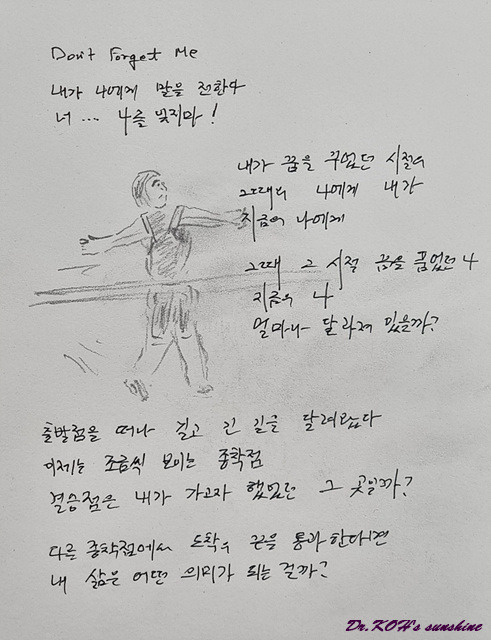 Don't Forget Me
내가 나에게 말을 전한다
너 ... 나를 잊지마!
내가 꿈을 꾸었던 시절의
그때의 나에게 내가
지금의 나에게
그때 그 시절 꿈을 품었던 나
지금의 나
얼마나 달라져 있을까?
출발점을 떠나 길고 긴 길을 달려왔다
이제는 조금씩 보이는 종착점
결승점은 내가 가고자 했었던 그 곳일까?
다른 종착점에서 도착의 끈을 통과한다면
내 삶은 어떤 의미가 되는 걸까?
Dr.KOH's sunshine